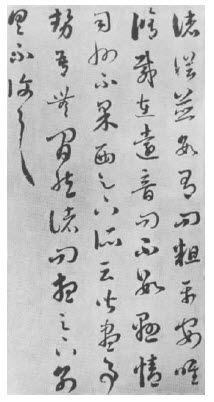 諸從並數有問粗平安唯
修載在遠音問不數懸情
司州不果西足下所云皆盡事
勢吾無間然諸問想足下別
具不復一一